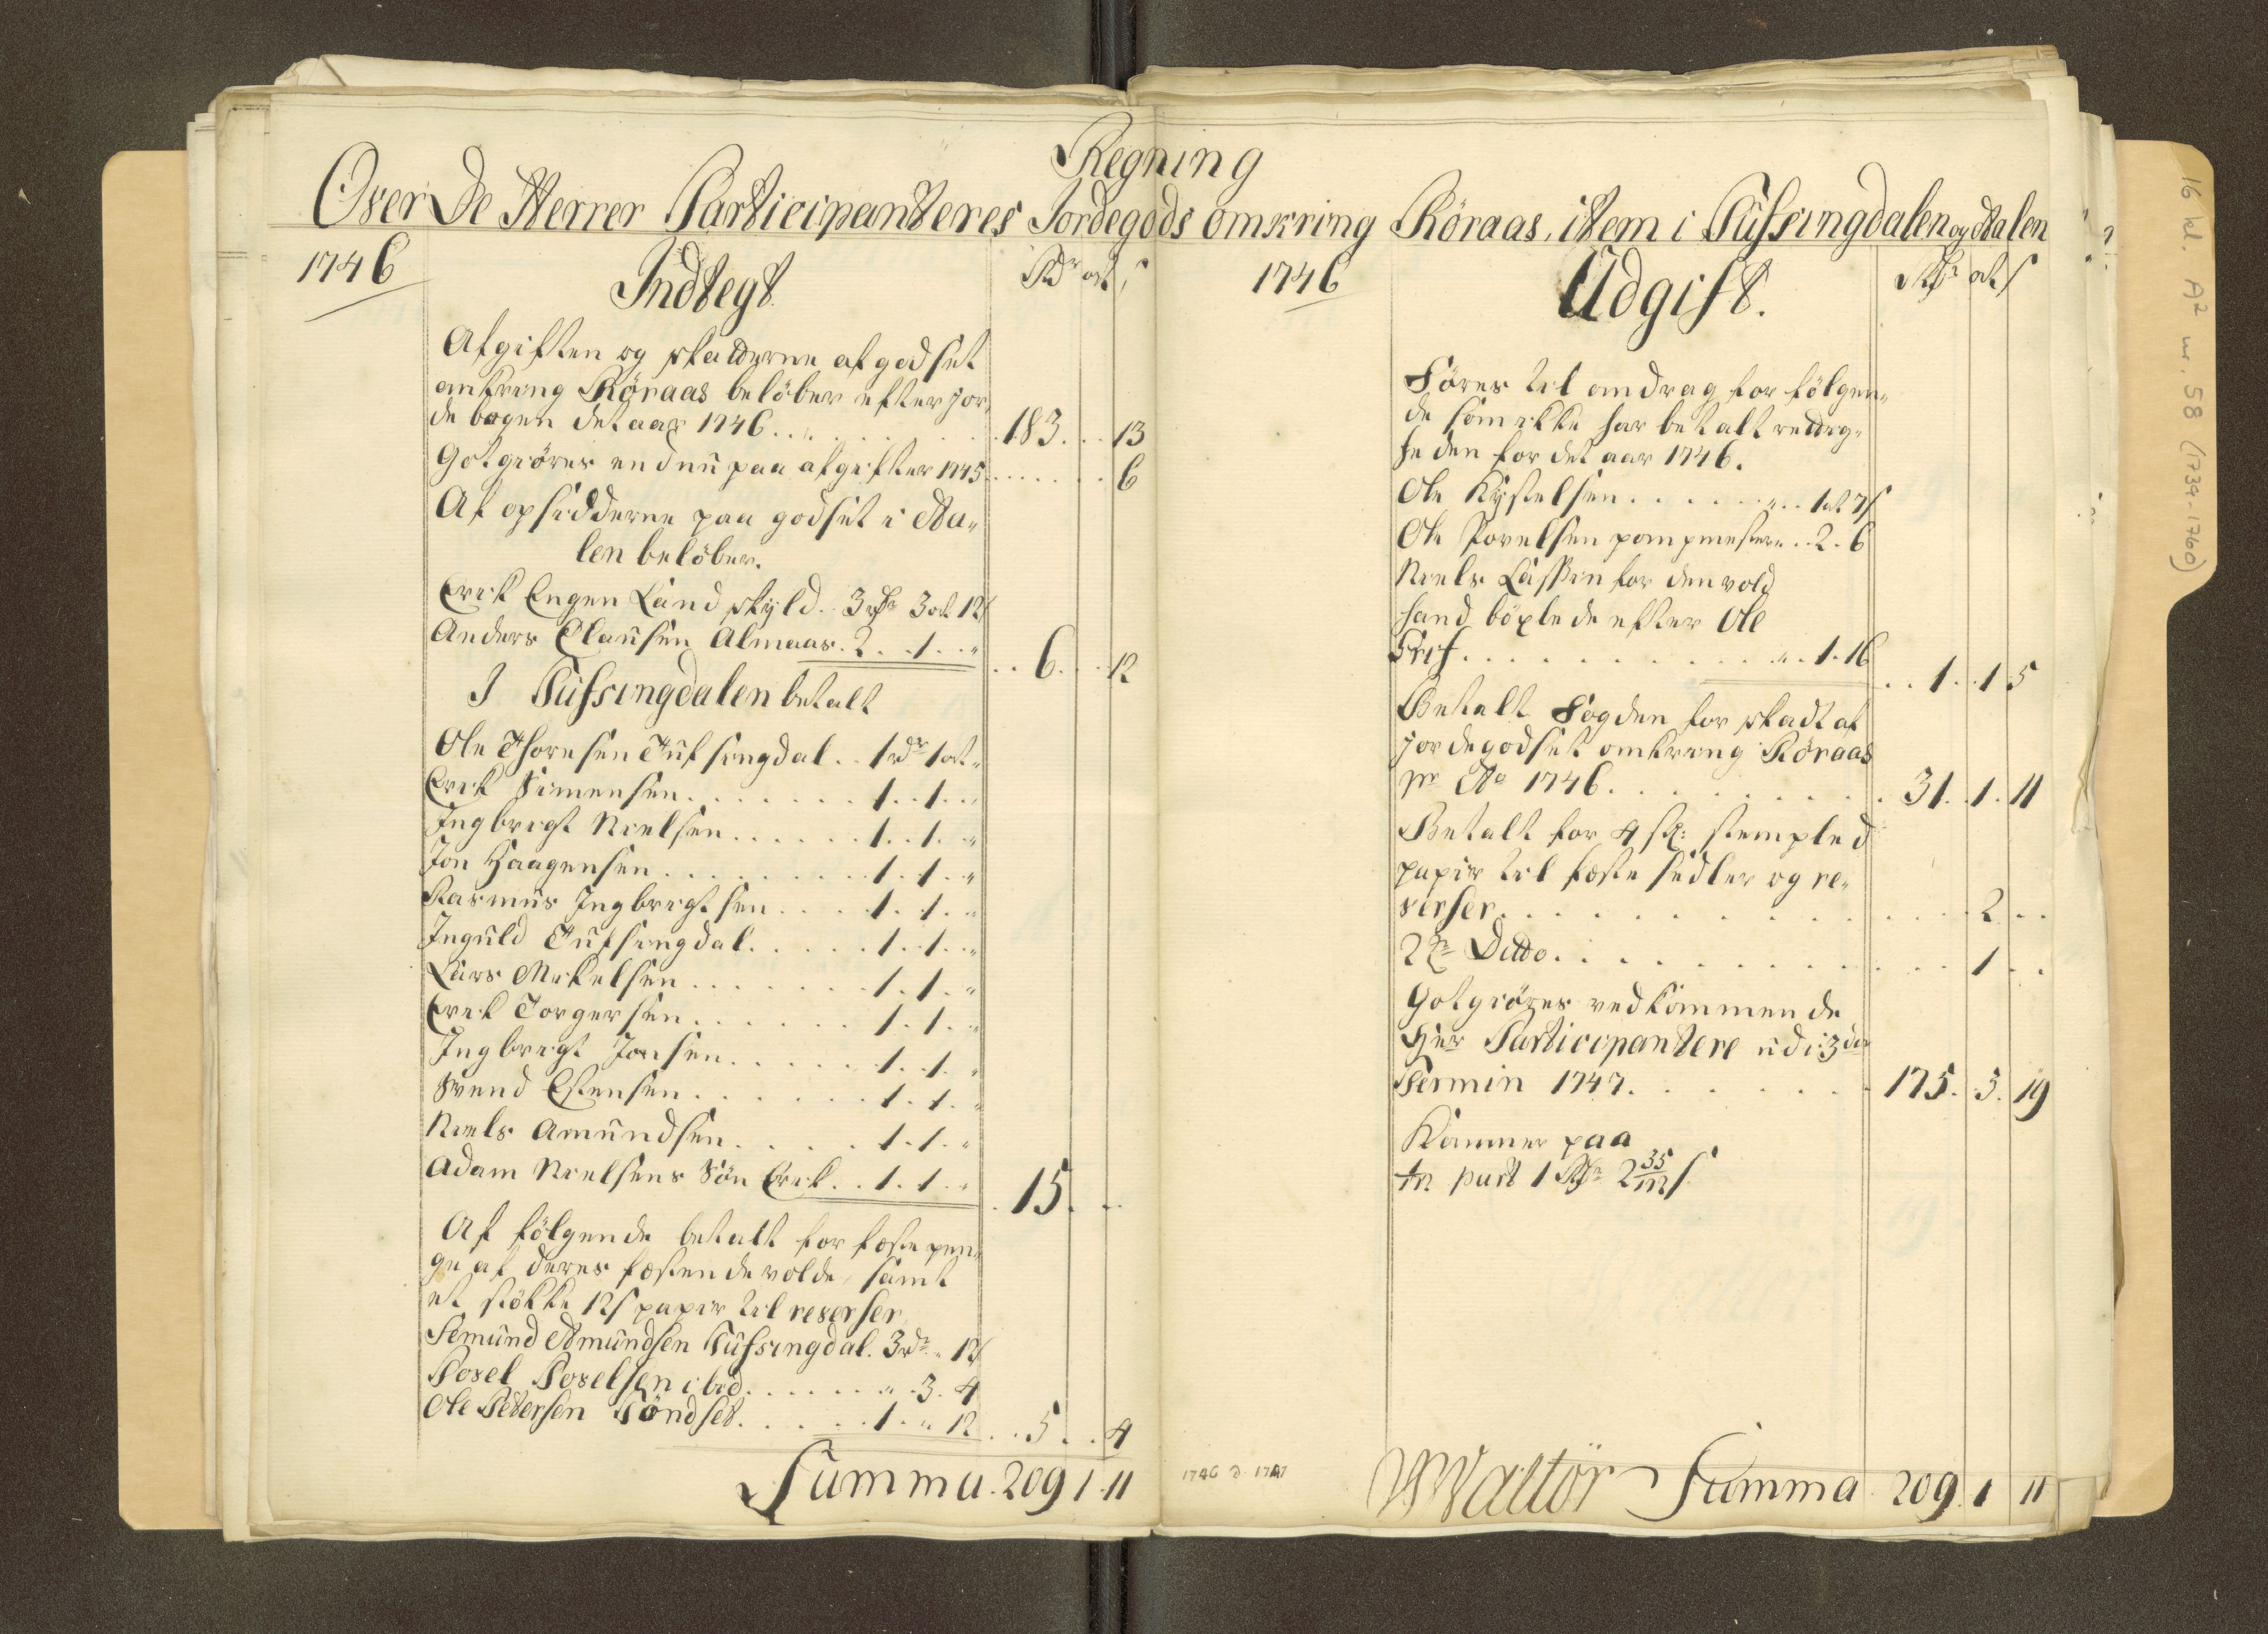 Regning
Over De Herrer Participanteres Jordegods omkring Röraas, item i Tüfsingdalen og Aalen
1746
Indtegt
Rdr ort s
Afgiften og skatterne af godset
omkring Röraas belöber efter jor-
de bogen det aar 1746 . . . 183 . . 13
Gotgiöres end nu paa afgifter 1745 . . . . 6
Af opsidderne paa godset i Aa-
len belöber.
Erik Engen Land skyld . 3 rdr 3 ort 12 s
Anders Clausen Almaas . 2 . . 1 . . " . . 6 . . . 12
I Tüfsingdalen betalt
Ole Thoresen Tüfsingdal . . 1 rdr 1 ort "
Erik Simensen . . . . . . . 1 . . 1 . . "
Ingbrigt Nielsen . . . . . . 1 . . 1 . "
Jon Haagensen . . . . . . . . 1 . 1 . . "
Rasmus Ingbrigtsen . . . . 1 . 1 . "
Inguld Tüfsingdal . . . . . 1 . . 1 . . "
Lars Mikelsen . . . . . . . 1 . 1 . "
Erik Torgersen . . . . . . 1 . 1 . "
Ingbrigt Jonsen . . . . . 1 . . 1 . "
Svend Estensen . . . . . . 1 . 1 . "
Niels Amundsen . . . . 1 . 1 . "
Adam Nielsens Sön Erik . . 1 . 1 . " . 15 . . .
Af fölgende betalt for fæste pen-
ge af deres fæstende volde, samt
et stökke 12 s papir til reverser
Semund Amundsen Tüfsingdal . 3 rdr " 12 s
Povel Povelsen ibid . . . . . . " . 3 . 4
Ole Petersen Töndset . . . . . 1 . " 12 . . 5 . . 4
Summa . 209 1 . 11
1746
Udgift.
Rdr ort s
Föres til andrag for fölgen-
de som ikke har betalt rettig-
heden for det aar 1746.
Ole Kystelsen . . . . . . " . . 1 ort 7 s
Ole Povelsen pompmester . . 2 . 6
Niels Lassen for den vold
hand böxlede efter Ole
Grif . . . . . . . . . . " . . 1 . 16 . . 1 . . 1 5
Betalt Fogden for skadt af
jordegodset omkring Röraas
pr Ao 1746 . . . . . . . . . 31 . . 1 . 11
Betalt for 4 st: stempled
papir til fæste sedler og re-
verser . . . . . . . . . . . . 2 . .
2 Ditto . . . . . . . . . . . . 1 . .
Gotgiöres vedkommende
Hrr Participantere udi 3die
Termin 1747 . . . . . . . 175 . 3 . 19
Kommer paa
hr part 1 Rdr 2 35/172 s
1746 d 1747
WWaltör Summa 209 . 1 11
16 kl. A2 nr. 58 (1734-1760)